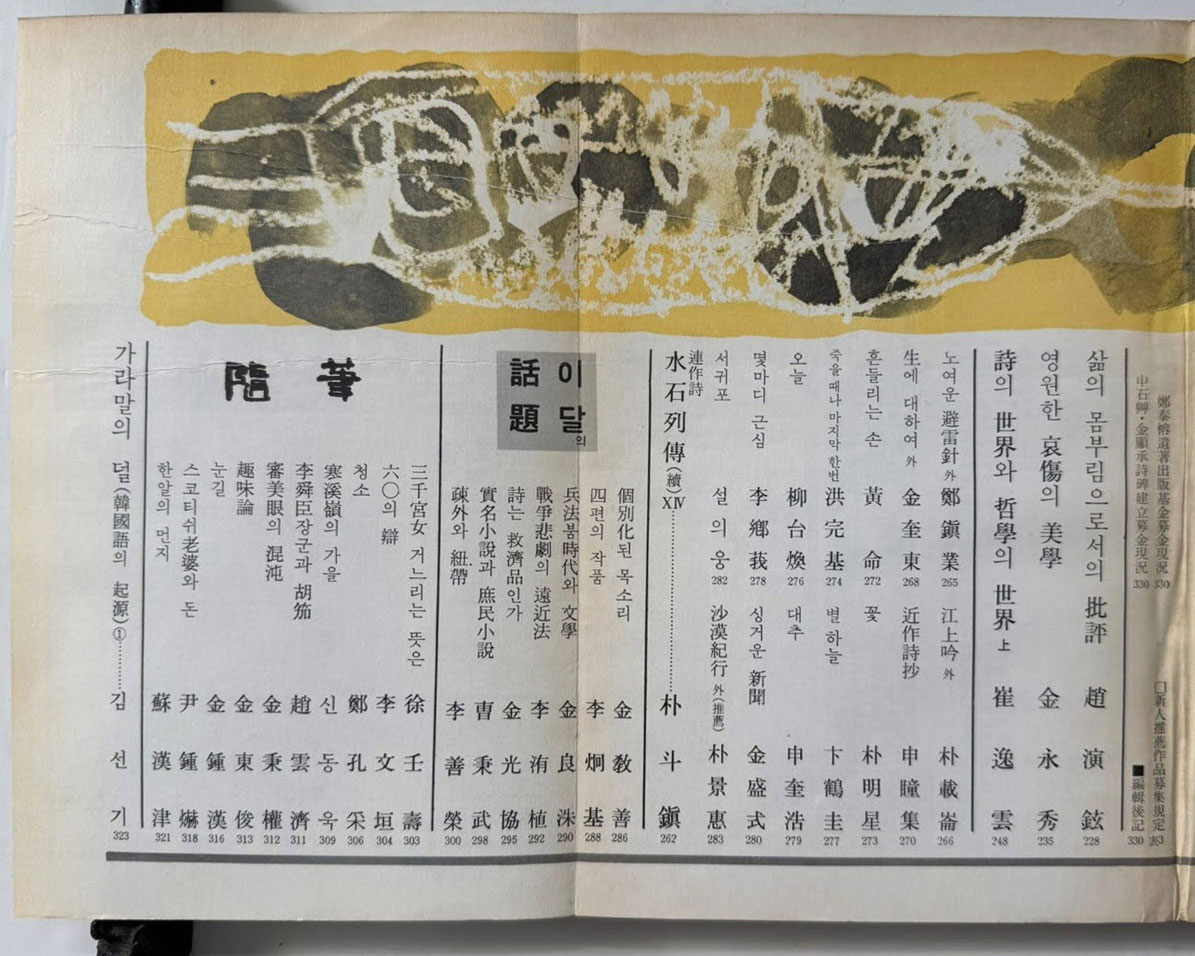 鄭泰榕遺著出版基金募金現況 330
申石艸・金顯承詩碑建立募金現況 330
□新人推薦作品募集規定 表3
■編輯後記 330
삶의 몸부림으로서의 批評 趙演鉉 228
영원한 哀傷의 美學 金永秀 235
詩의 世界와 哲學의 世界 上 崔逸雲 248
노여운 避雷針 外 鄭鎭業 265
江上吟 外 朴載崙 266
生에 대하여 外 金奎東 268
近作詩抄 申瞳集 270
흔들리는 손 黃命 272
꽃 朴明星 273
죽을 때나 마지막 한번 洪完基 274
별 하늘 卞鶴圭 277
오늘 柳台煥 276
대추 申奎浩 279
몇마디 근심 李鄕莪 278
싱거운 新聞 金盛式 280
서귀포 설의웅 282
沙漠紀行 外(推薦) 朴景惠 283
連作詩
水石列傳(續)XIV 朴斗鎭 262
이달의
話題
個別化된 목소리 金敎善 286
四편의 작품 李炯基 288
兵法붐時代와 文學 金良洙 290
戰爭悲劇의 遠近法 李洧植 292
詩는 救濟品인가 金光協 295
實名小說과 庶民小說 曺秉武 298
疎外와 紐帶 李善榮 300
隨筆
三千宮女 거느리는 뜻은 徐壬壽 303
六〇의 辯 李文垣 304
청소 鄭孔采 306
寒溪嶺의 가을 신동욱 309
李舜臣장군과 胡笳 趙雲濟 311
審美眼의 混沌 金秉權 312
趣味論 金東俊 313
눈길 金鍾漢 316
스코티쉬老婆와 돈 尹鍾爀 318
한알의 먼지 蘇漢津 321
가라말의 덜(韓國語의 起源)① 김선기 323